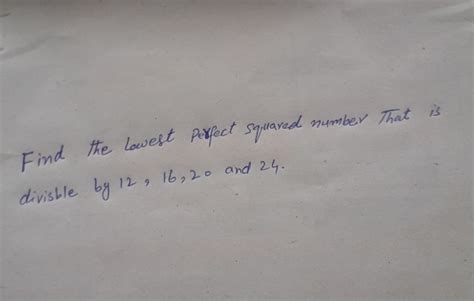 Find the Lowest Perfect squared number That is
divisble by 12, 16, 20 and 24.